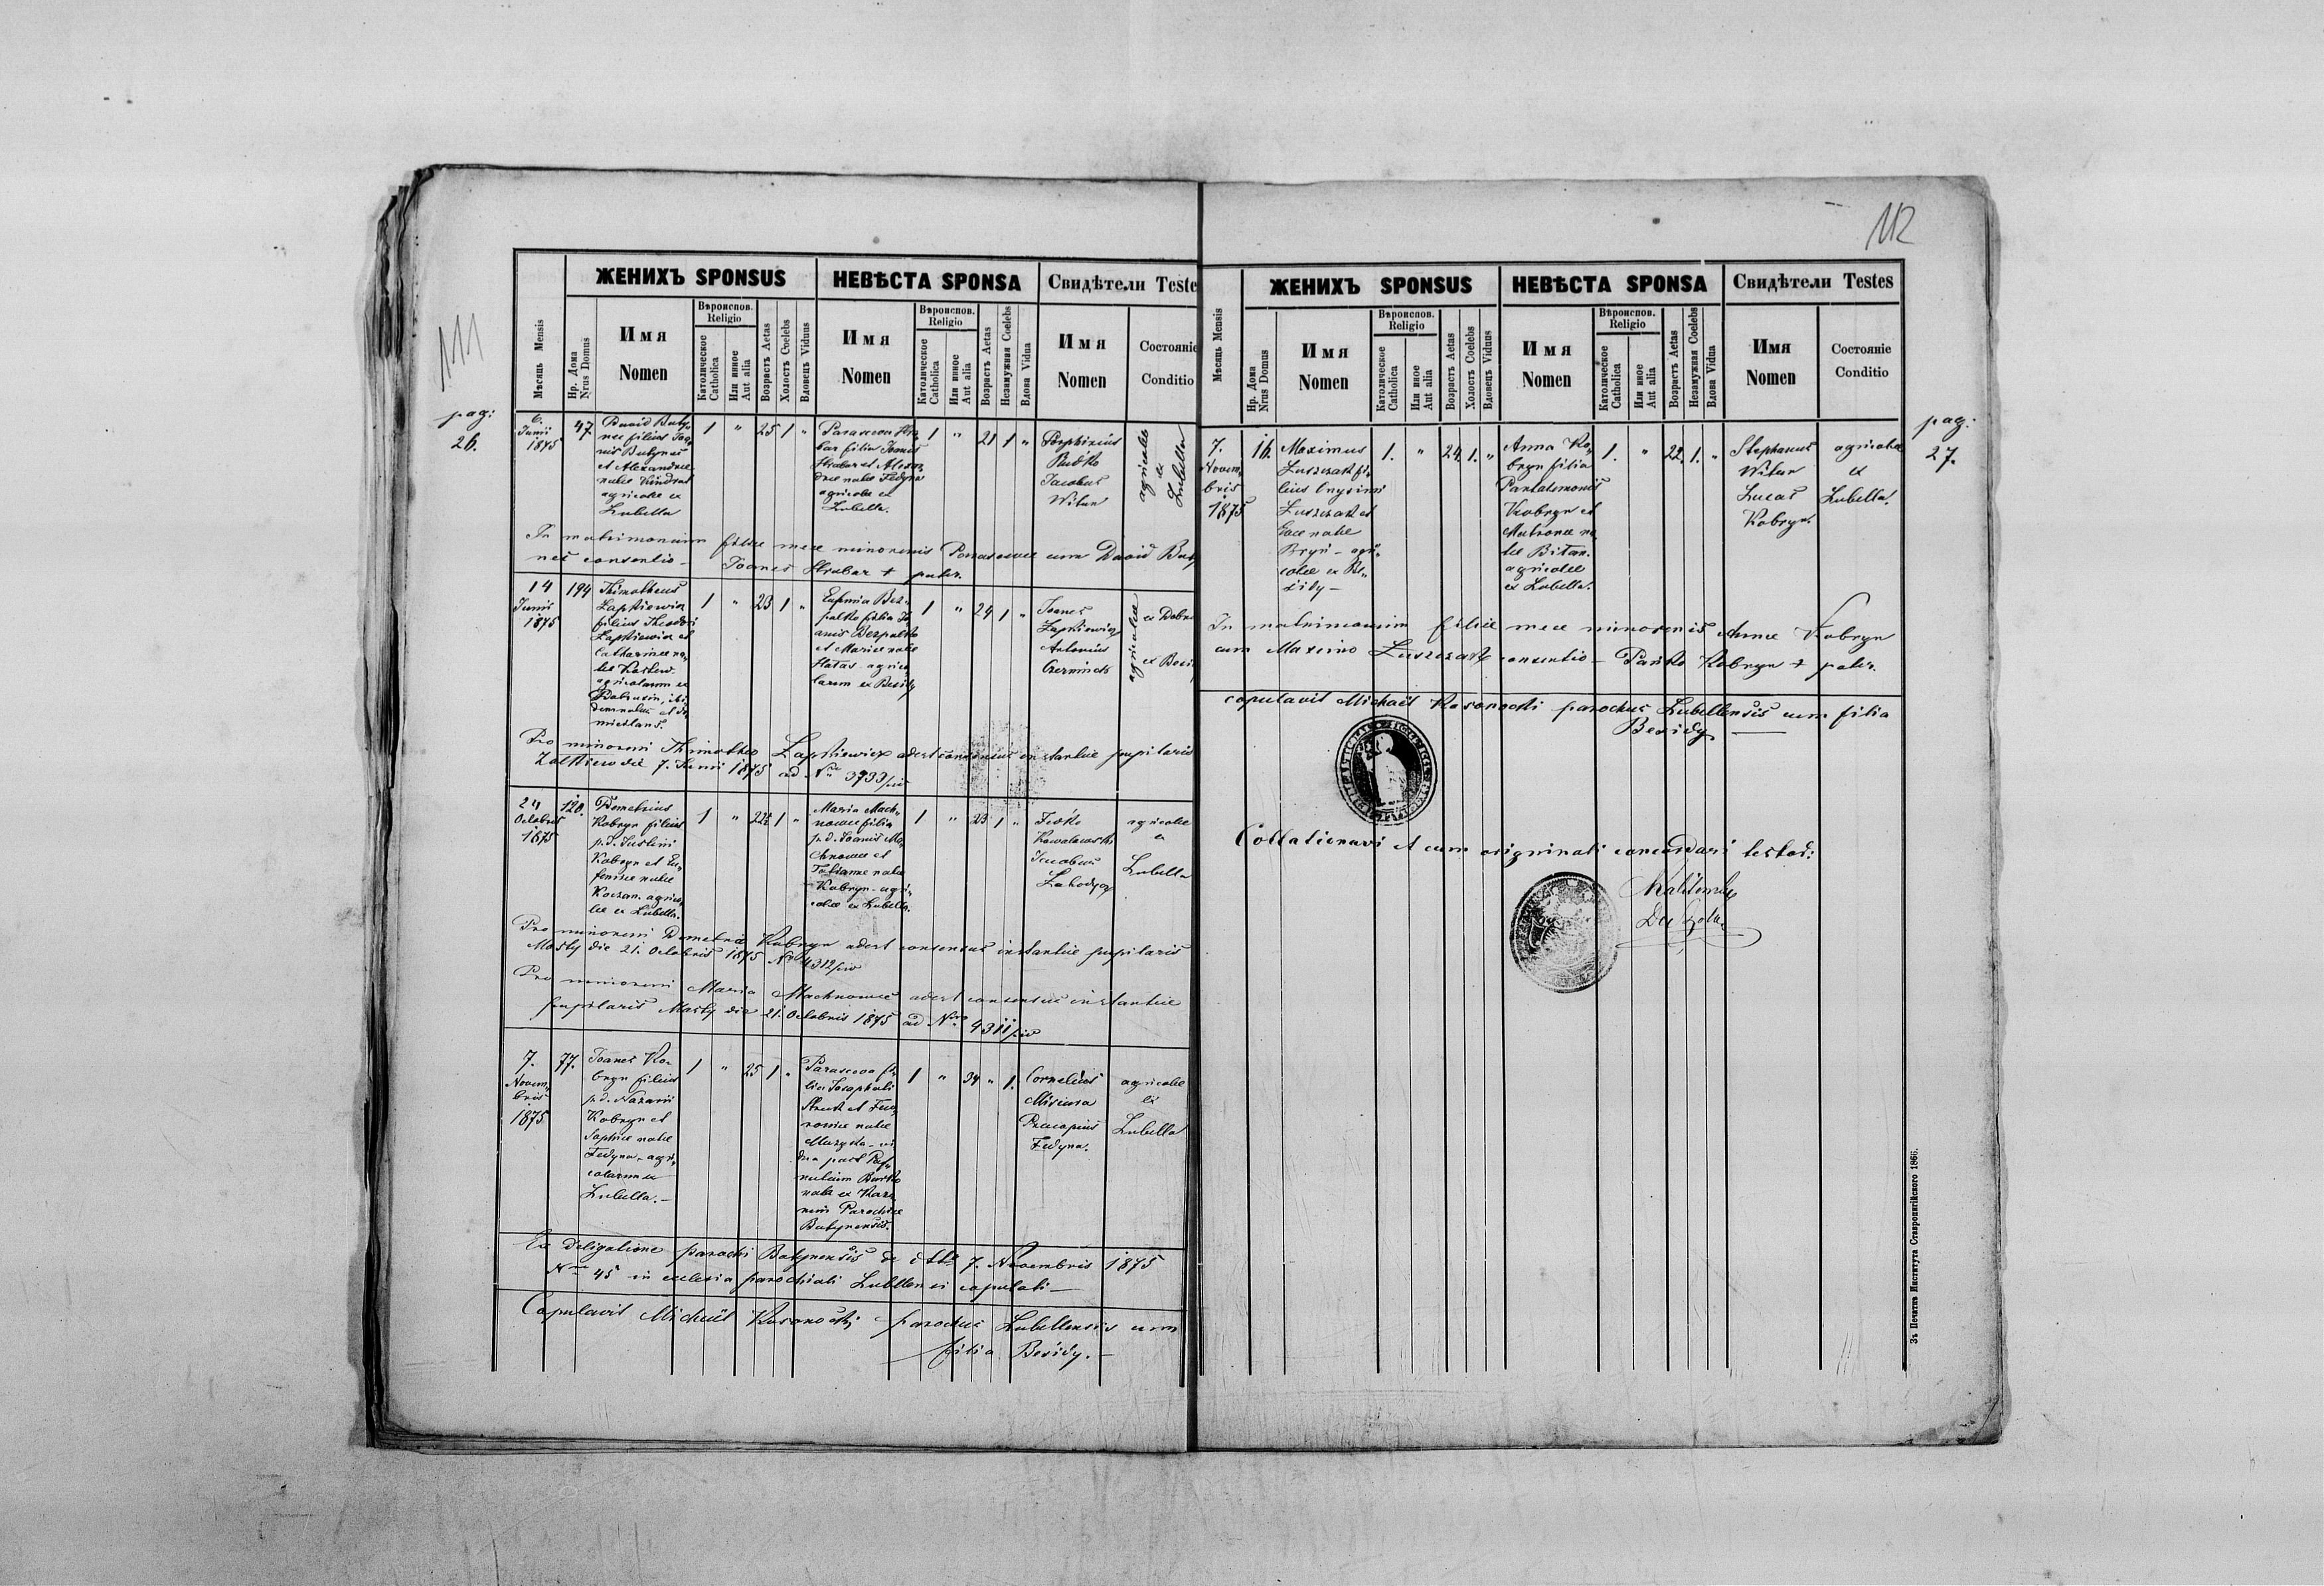 111
pag:
26.
ЖЕНИХЪ SPONSUS
НЕВѢСТА SPONSA
Свидѣтели Teste
Мѣсяць Mensis
Нр. Дома
Nrus Domus
Имя
Nomen
Вѣроиспов.
Religio
Католическое
Catholica
Или иное
Aut alia
Возрастъ Aetas
Холостъ Coelebs
Вдовецъ Viduus
Имя
Nomen
Вѣроиспов.
Religio
Католическое
Catholica
Или иное
Aut alia
Возрастъ Aetas
Незамужная Coelebs
Вдова Vidua
Имя
Nomen
Состоянiе
Conditio
6.
Junii
1875
47.
David Buty-
nec filius Joa-
nis Butynec
et Alexandrae
natae Kindrat
agricolae ex
Lubella
1 " 25 1 "
Parasceva Hra-
bar filia Joanis
Hrabar et Alexan-
drae natae Fedyna
agricolae ex
Lubella.
1 " 21 1 "
Porphirius
Budko
Jacobus
Witan
agricolae
ex
Lubella
In matrimonium filiae meae minorenis Parascevae cum David Buty
nec consentio - Joanes Hrabar + pater.
14
Junii
1875
194
Thimotheus
Lapkiewicz
filius Theodori
Lapkiewicz et
Catharinae na-
tae
agricolarum ex
ibi-
dem natus et do-
micilians.
1 " 23 1 "
Eufemia Bez-
palko filia Jo-
anis Bezpalko
et Mariae natae
Hatas agrico-
larum ex Besidy
1 " 24 1 "
Joanes
Lapkiewicz
Antonius
Czerminski
agricolae
ex Dobro
ex Besid
Pro minoreni Thimotheo Lapkiewicz adest consensus instantiae pupilaris
Zolkiew die 7. Junii 1875 ad Nrm 3733/civ
24
Octobris
1875
120.
Demetrius
Kobryn filius
p. d. Justini
Kobryn et Eu-
femiae natae
Koczan. agrico-
lae ex Lubella.
1 " 22½ 1 "
Maria Mach-
nowec filia
p. d. Joanis Ma-
chnowec et
Tatianae natae
Kobryn - agri-
colae ex Lubella.
1 " 23 1 "
Fedko
Kowalewski
Jacobus
Zahodya
agricolae
ex
Lubella
Pro minoreni Demetrio Kobryn adest consensus instantiae pupilaris
Mosty die 21. Octobris 1875 Nro 4312/civ
Pro minoreni Maria Machnowec adest consensus instantiae
pupilaris Mosty die 21. Octobris 1875 ad Nrm 4311/civ
7.
Novem-
bris
1875
77.
Joanes Ko-
bryn filius
p. d. Nazarii
Kobryn et
Sophiae natae
Fedyna - agri-
colarum ex
Lubella. -
1 " 25 1 "
Parasceva fi-
lia Josaphati
et Feo-
roniae natae
Muzyka - vi-
dua post
Budko
nata ex
Parochiae
Butynensis.
1 " 34 " 1.
Cornelius
Misiura
Procopius
Fedyna.
agricolae
ex
Lubella
Ex deligatione parochi Butynensis de dtto 7. Novembris 1875
Nrm 45 in ecclesia parochiali Lubellensi copulati -
Copulavit Michaël Kosonocki parochus Lubellensis cum
filia Besidy. -
112
pag:
27.
ЖЕНИХЪ SPONSUS
НЕВѢСТА SPONSA
Свидѣтели Testes
Мѣсяць Mensis
Нр. Дома
Nrus Domus
Имя
Nomen
Вѣроиспов.
Religio
Католическое
Catholica
Или иное
Aut alia
Возрастъ Aetas
Холостъ Coelebs
Вдовецъ Viduus
Имя
Nomen
Вѣроиспов.
Religio
Католическое
Catholica
Или иное
Aut alia
Возрастъ Aetas
Незамужная Coelebs
Вдова Vidua
Имя
Nomen
Состоянiе
Conditio
7.
Novem-
bris
1875
16.
Maximus
Luszczak fi-
lius Onysimi
Luszczak et
Evae natae
Bryń - agri-
colae ex Be-
sidy -
1. " 24. 1. "
Anna Ko-
bryn filia
Pantalemonis
Kobryn et
Matronae na-
tae Witan.
agricolae
ex Lubella.
1. " 22. 1. "
Stephanus
Witan
Lucas
Kobryn.
agricolae
ex
Lubella.
In matrimonium filiae meae minorenis Annae Kobryn
cum Maximo Luszczak consentio - Pańko Kobryn + pater.
copulavit Michaël Kosonocki parochus Lubellensis cum filia
Besidy
Collationavi et cum originali concordari testor:
З' Печатнѣ Института Ставропигійского 1866.